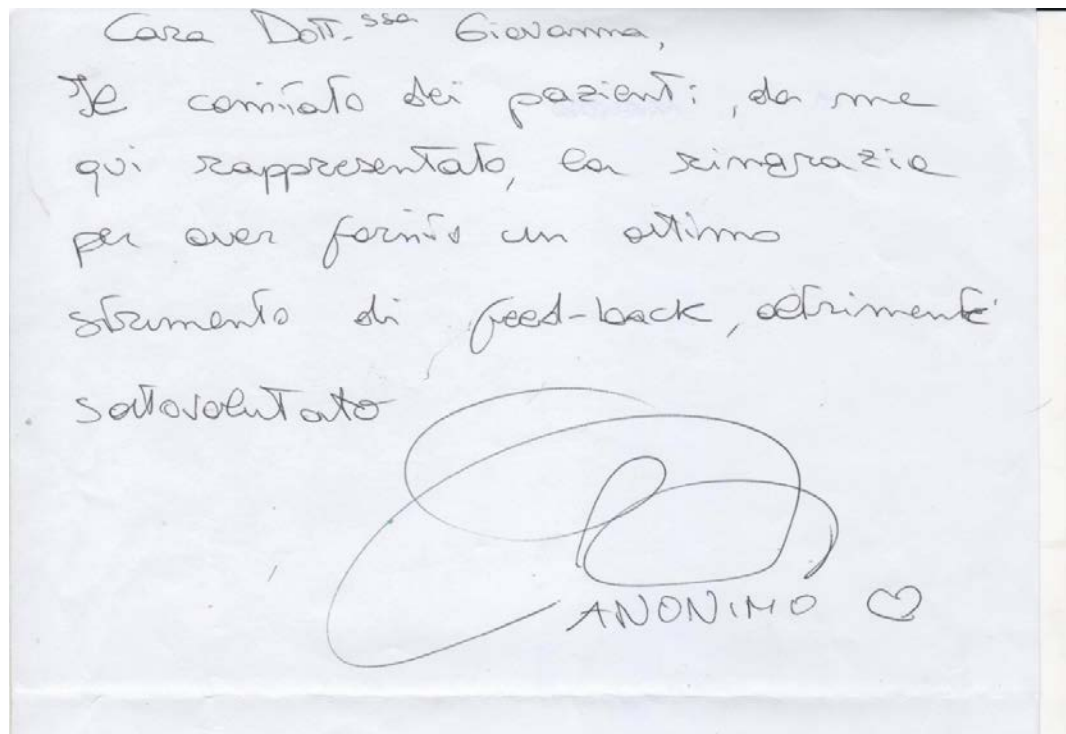 Cara Dott.ssa Giovanna,
Il comitato dei pazienti, da me
qui rappresentato, la ringrazia
per aver fornito un ottimo
strumento di feed-back, altrimenti
sottovalutato
ANONIMO ♡